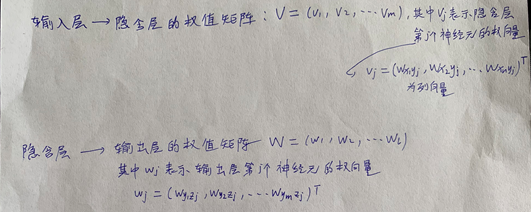 输入层 → 隐含层的权值矩阵：V = (v₁, v₂, ⋯ vm), 其中 vj 表示隐含层
第j个神经元的权向量
vj = (wx₁yj, wx₂yj, ⋯ wxnyj)ᵀ
为列向量
隐含层 → 输出层的权值矩阵 W = (w₁, w₂, ⋯ wl)
其中 wj 表示输出层第j个神经元的权向量
wj = (wy₁zj, wy₂zj, ⋯ wymzj)ᵀ